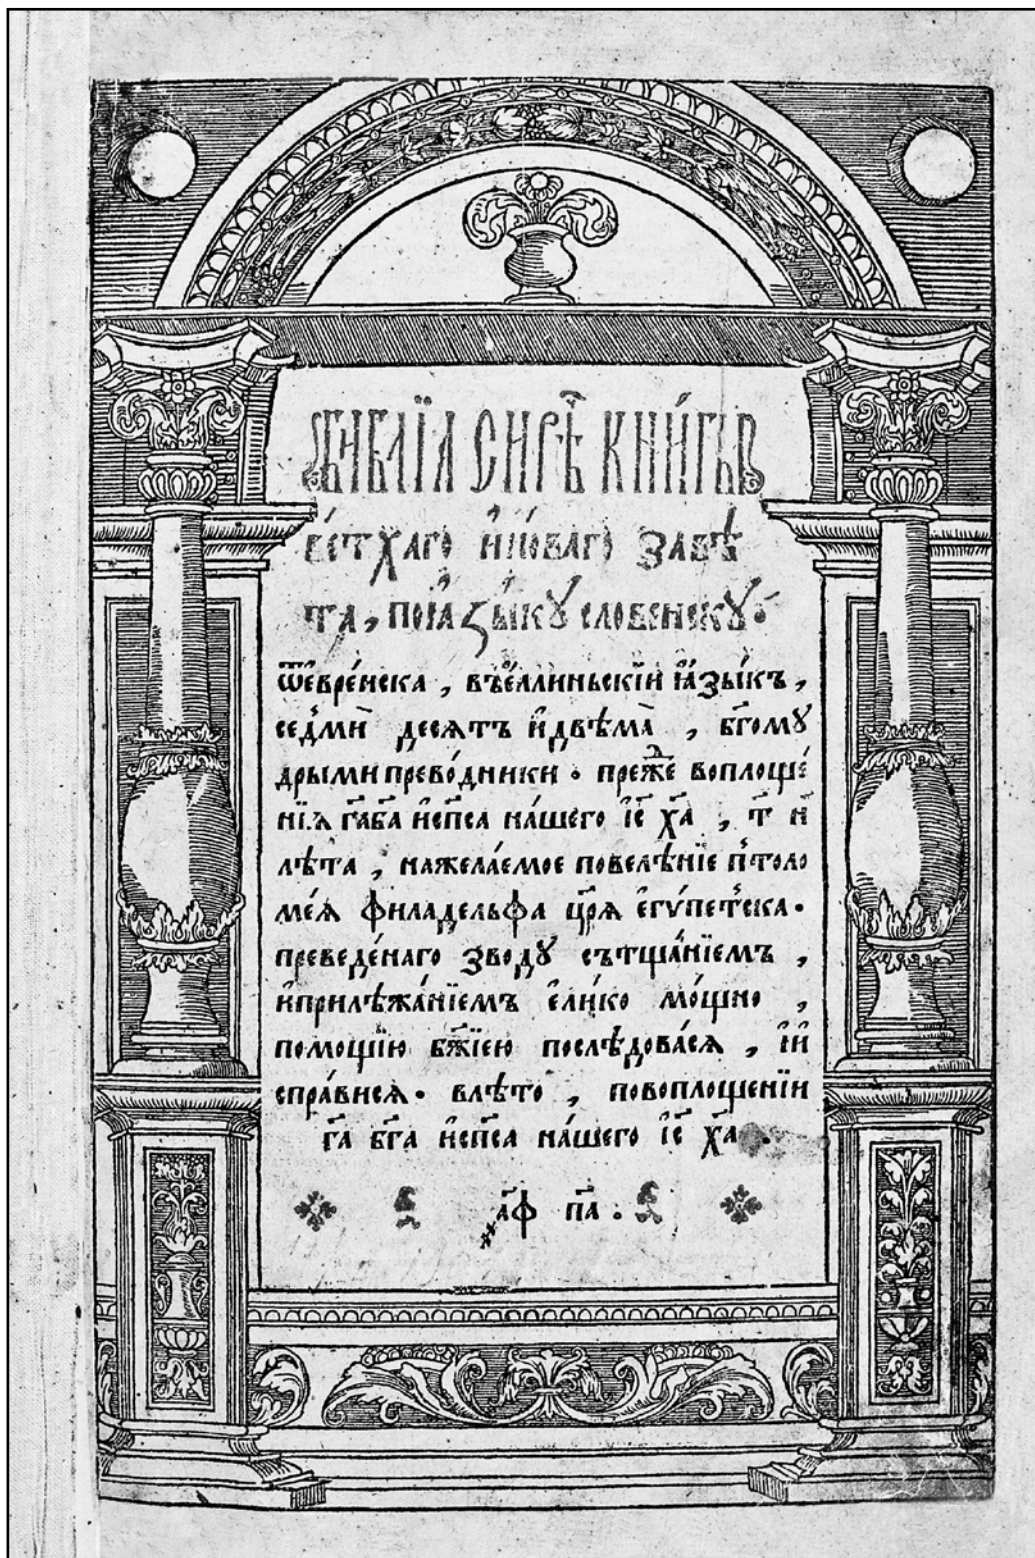 Библїѧ сирѣⷱ҇ кни́гы
ве́тхаго и҆но́ваго завѣ
та, поꙗ҆зы́кꙋ слове́нскꙋ.
ѿе҆вре́йска, въе҆ллиньскїй ꙗ҆зы́къ,
се́дмй десѧтъ и҆двѣма̀, бг҃омꙋ
дрыми прево́дники. пре́жⷣе воплоще́
нїѧ гⷭ҇а бг҃а и҆сп҃са на́шего і҆с҃ хⷭ҇а, т҃ и҆
лѣ́та, на жела́емое повелѣ́нїе пⷮтоло
ме́ѧ филаде́льфа цр҃ѧ е҆гѵ́петска.
преведе́наго зводꙋ сътща́нїемъ,
и҆прилѣжа́нїемъ е҆ли́ко мо́щно,
помощїю бж҃їею послѣ́довасѧ, и҆и҆
спра́висѧ. влѣ́то, повоплоще́нїи
гⷭ҇а бг҃а и҆сп҃са на́шего і҆с҃ хⷭ҇а.
а҂ф па.